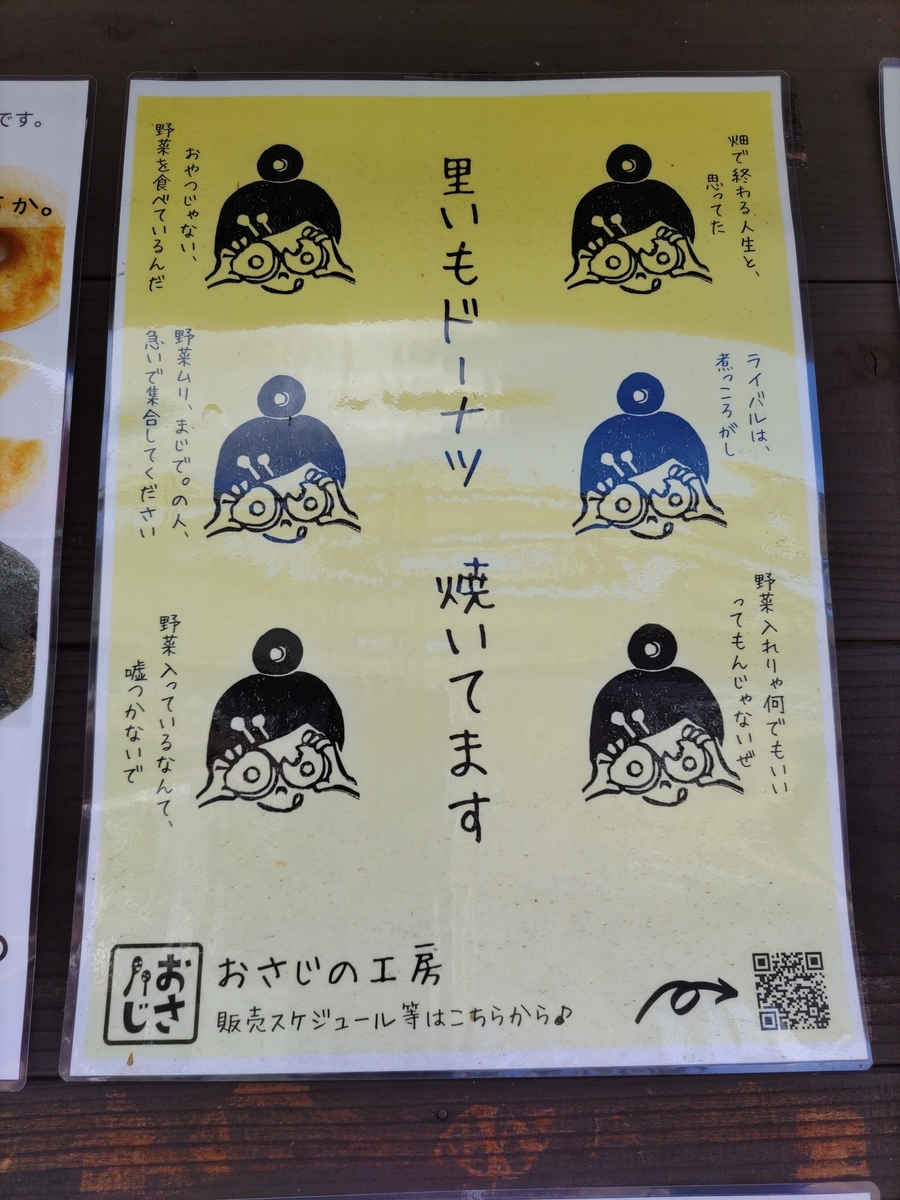 里いもドーナツ 焼いてます
畑で終わる人生と、
思ってた
おやつじゃない、
野菜を食べているんだ
ライバルは、
煮っころがし
野菜ムリ、まじで。の人、
急いで集合してください
野菜入れりゃ何でもいい
ってもんじゃないぜ
野菜入っているなんて、
嘘つかないで
おさじ
おさじの工房
販売スケジュール等はこちらから♪
です。
か。